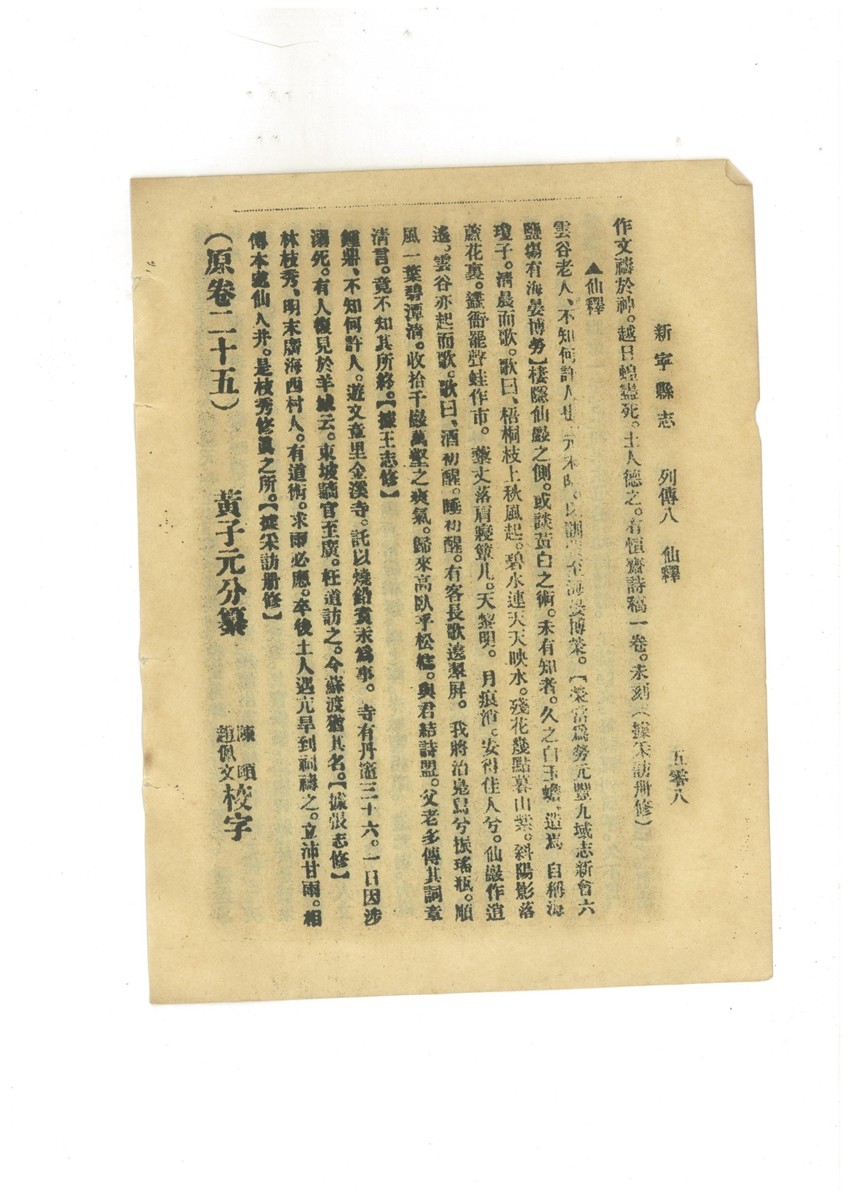 新寧縣志　列傳八　仙釋　五零八
作文禱於神。越日蝗盡死。土人德之。有恒齋詩稿一卷。未刻（據采訪册修）
▲仙釋
雲谷老人、不知何許人也、元末時、以 至海晏博榮。【榮當爲勞元豐九域志新會六
鹽塲有海晏博勞】棲隱仙巖之側。或談黃白之術。未有知者。久之白玉蟾、造焉、自稱海
瓊子。淸晨而歌。歌曰、梧桐枝上秋風起。碧水連天天映水。殘花幾點暮山紫。斜陽影落
蘆花裏。蠭衙罷聲蛙作市。藜丈落肩寢簟儿。天黎明。月痕消。安得住人兮。仙巖作逍
遙。雲谷亦起而歌。歌曰、酒初醒。睡初醒。有客長歌遶翠屛。我將治凫舄兮振瑤瓶。順
風一葉碧潭淸。收拾千巖萬壑之爽氣。歸來高臥乎松 。與君結詩盟。父老多傳其詞章
淸言。竟不知其所終。【據王志修】
鐘鼎、不知何許人。遊文章里金溪寺。託以燒鉛煑汞爲事。寺有丹 三十六。一日因涉
溺死。有人復見於羊城云。東坡謫官至廣。枉道訪之。今蘇渡猶其名。【據張志修】
林枝秀、明末廣海西村人。有道術。求雨必應。卒後土人遇亢旱到祠禱之。立沛甘雨。相
傳本處仙人井。是枝秀修眞之所。【據采訪册修】
（原卷二十五）　黃子元分纂　陳頤　趙佩文　校字